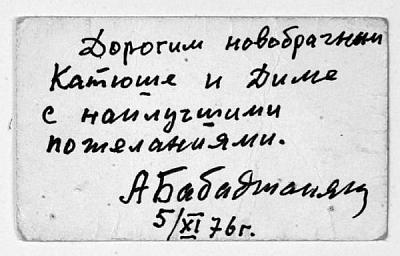 Дорогим новобрачным
Катюше и Диме
с наилучшими
пожеланиями.
АБабаджанян
5/XI 76г.